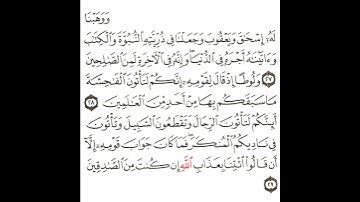 وَوَهَبْنَا
لَهُۥٓ إِسْحَٰقَ وَيَعْقُوبَ وَجَعَلْنَا فِى ذُرِّيَّتِهِ ٱلنُّبُوَّةَ وَٱلْكِتَٰبَ
وَءَاتَيْنَٰهُ أَجْرَهُۥ فِى ٱلدُّنْيَا ۖ وَإِنَّهُۥ فِى ٱلْءَاخِرَةِ لَمِنَ ٱلصَّٰلِحِينَ
٢٧ وَلُوطًا إِذْ قَالَ لِقَوْمِهِۦٓ إِنَّكُمْ لَتَأْتُونَ ٱلْفَٰحِشَةَ
مَا سَبَقَكُم بِهَا مِنْ أَحَدٍ مِّنَ ٱلْعَٰلَمِينَ ٢٨
أَئِنَّكُمْ لَتَأْتُونَ ٱلرِّجَالَ وَتَقْطَعُونَ ٱلسَّبِيلَ وَتَأْتُونَ
فِى نَادِيكُمُ ٱلْمُنكَرَ ۖ فَمَا كَانَ جَوَابَ قَوْمِهِۦٓ إِلَّآ
أَن قَالُوا۟ ٱئْتِنَا بِعَذَابِ ٱللَّهِ إِن كُنتَ مِنَ ٱلصَّٰدِقِينَ
٢٩